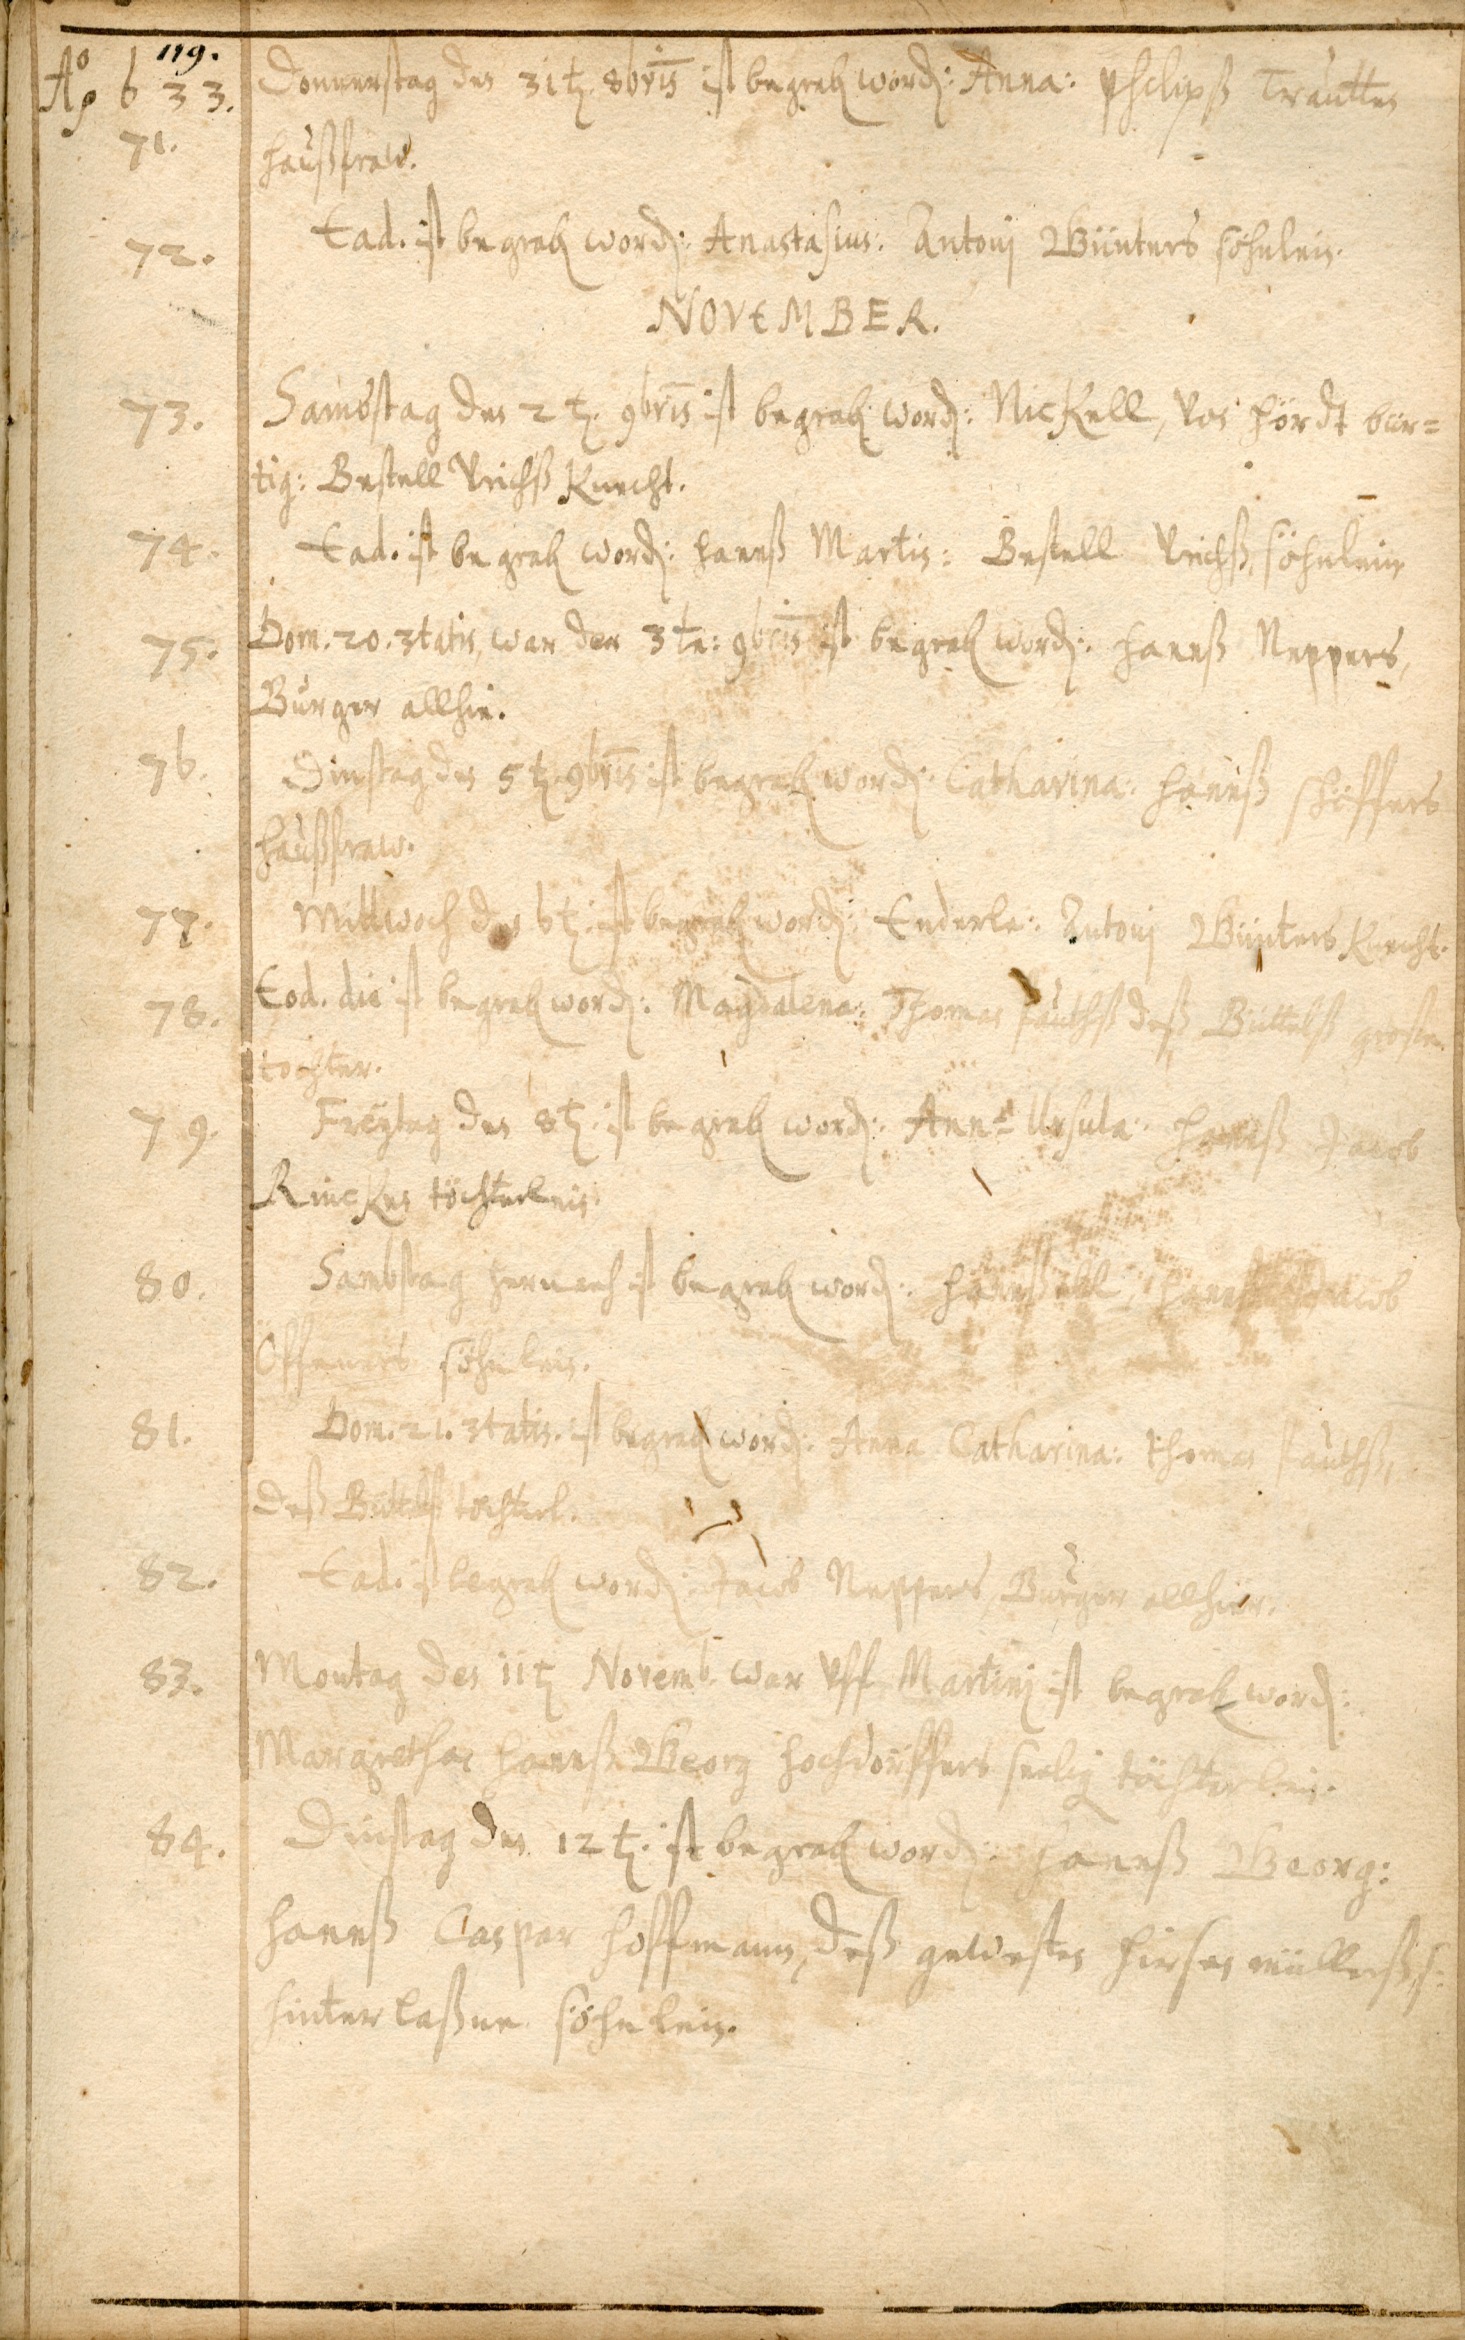 119.
Ao 633.
71. Donnerstag den 31t. 8bris ist begrab. word.: Anna: Philipß Trautten
haußfraw.
72. Ead. ist begrab. word.: Anastasius: Antonj Günters söhnlein.
NOVEMBER.
73. Sambstag den 2t. 9bris ist begrab. word.: Nickell, von Hördt bür=
tig: Bestell Vrichß Knecht.
74. Ead. ist begrab. word.: Hanß Martin: Bestell Vrichß, söhnlein
75. Dom. 20. 3tatis, war der 3te: 9bris ist begrab. word.: Hanß Neppers,
Burger allhie.
76. Dinstag den 5t. 9bris ist begrab. word.: Catharina: Hanß Schöffers
haußfraw.
77. Mittwoch den 6t. ist begrab. word.: Enderle: Antonj Günters Knecht.
78. Eod. die ist begrab. word.: Magdalena: Thomas Fauthß deß Büttelß groste
tochter.
79. Freytag den 8t. ist begrab. word.: Anna Ursula: Hanß Jacob
Rincken töchterlein.
80. Sambstag hernach ist begrab. word.: Hanß Jacob
Offeners söhnlein.
81. Dom. 21. 3tatis. ist begrab. word.: Anna Catharina: Thomas Fauthß,
deß Büttelß töchterl.
82. Ead. ist begrab. word.: Jacob Neppers, Burger allhier.
83. Montag den 11t. Novemb. war vff Martinj ist begrab. word.:
Margretha: Hanß Georg Hochdörffers seelig töchterlein.
84. Dinstag den 12t. ist begrab. word.: Hanß Georg:
Hanß Caspar Hoffmann, deß gewesten Hirsen müllerß, s.
hinterlaßne söhnlein.